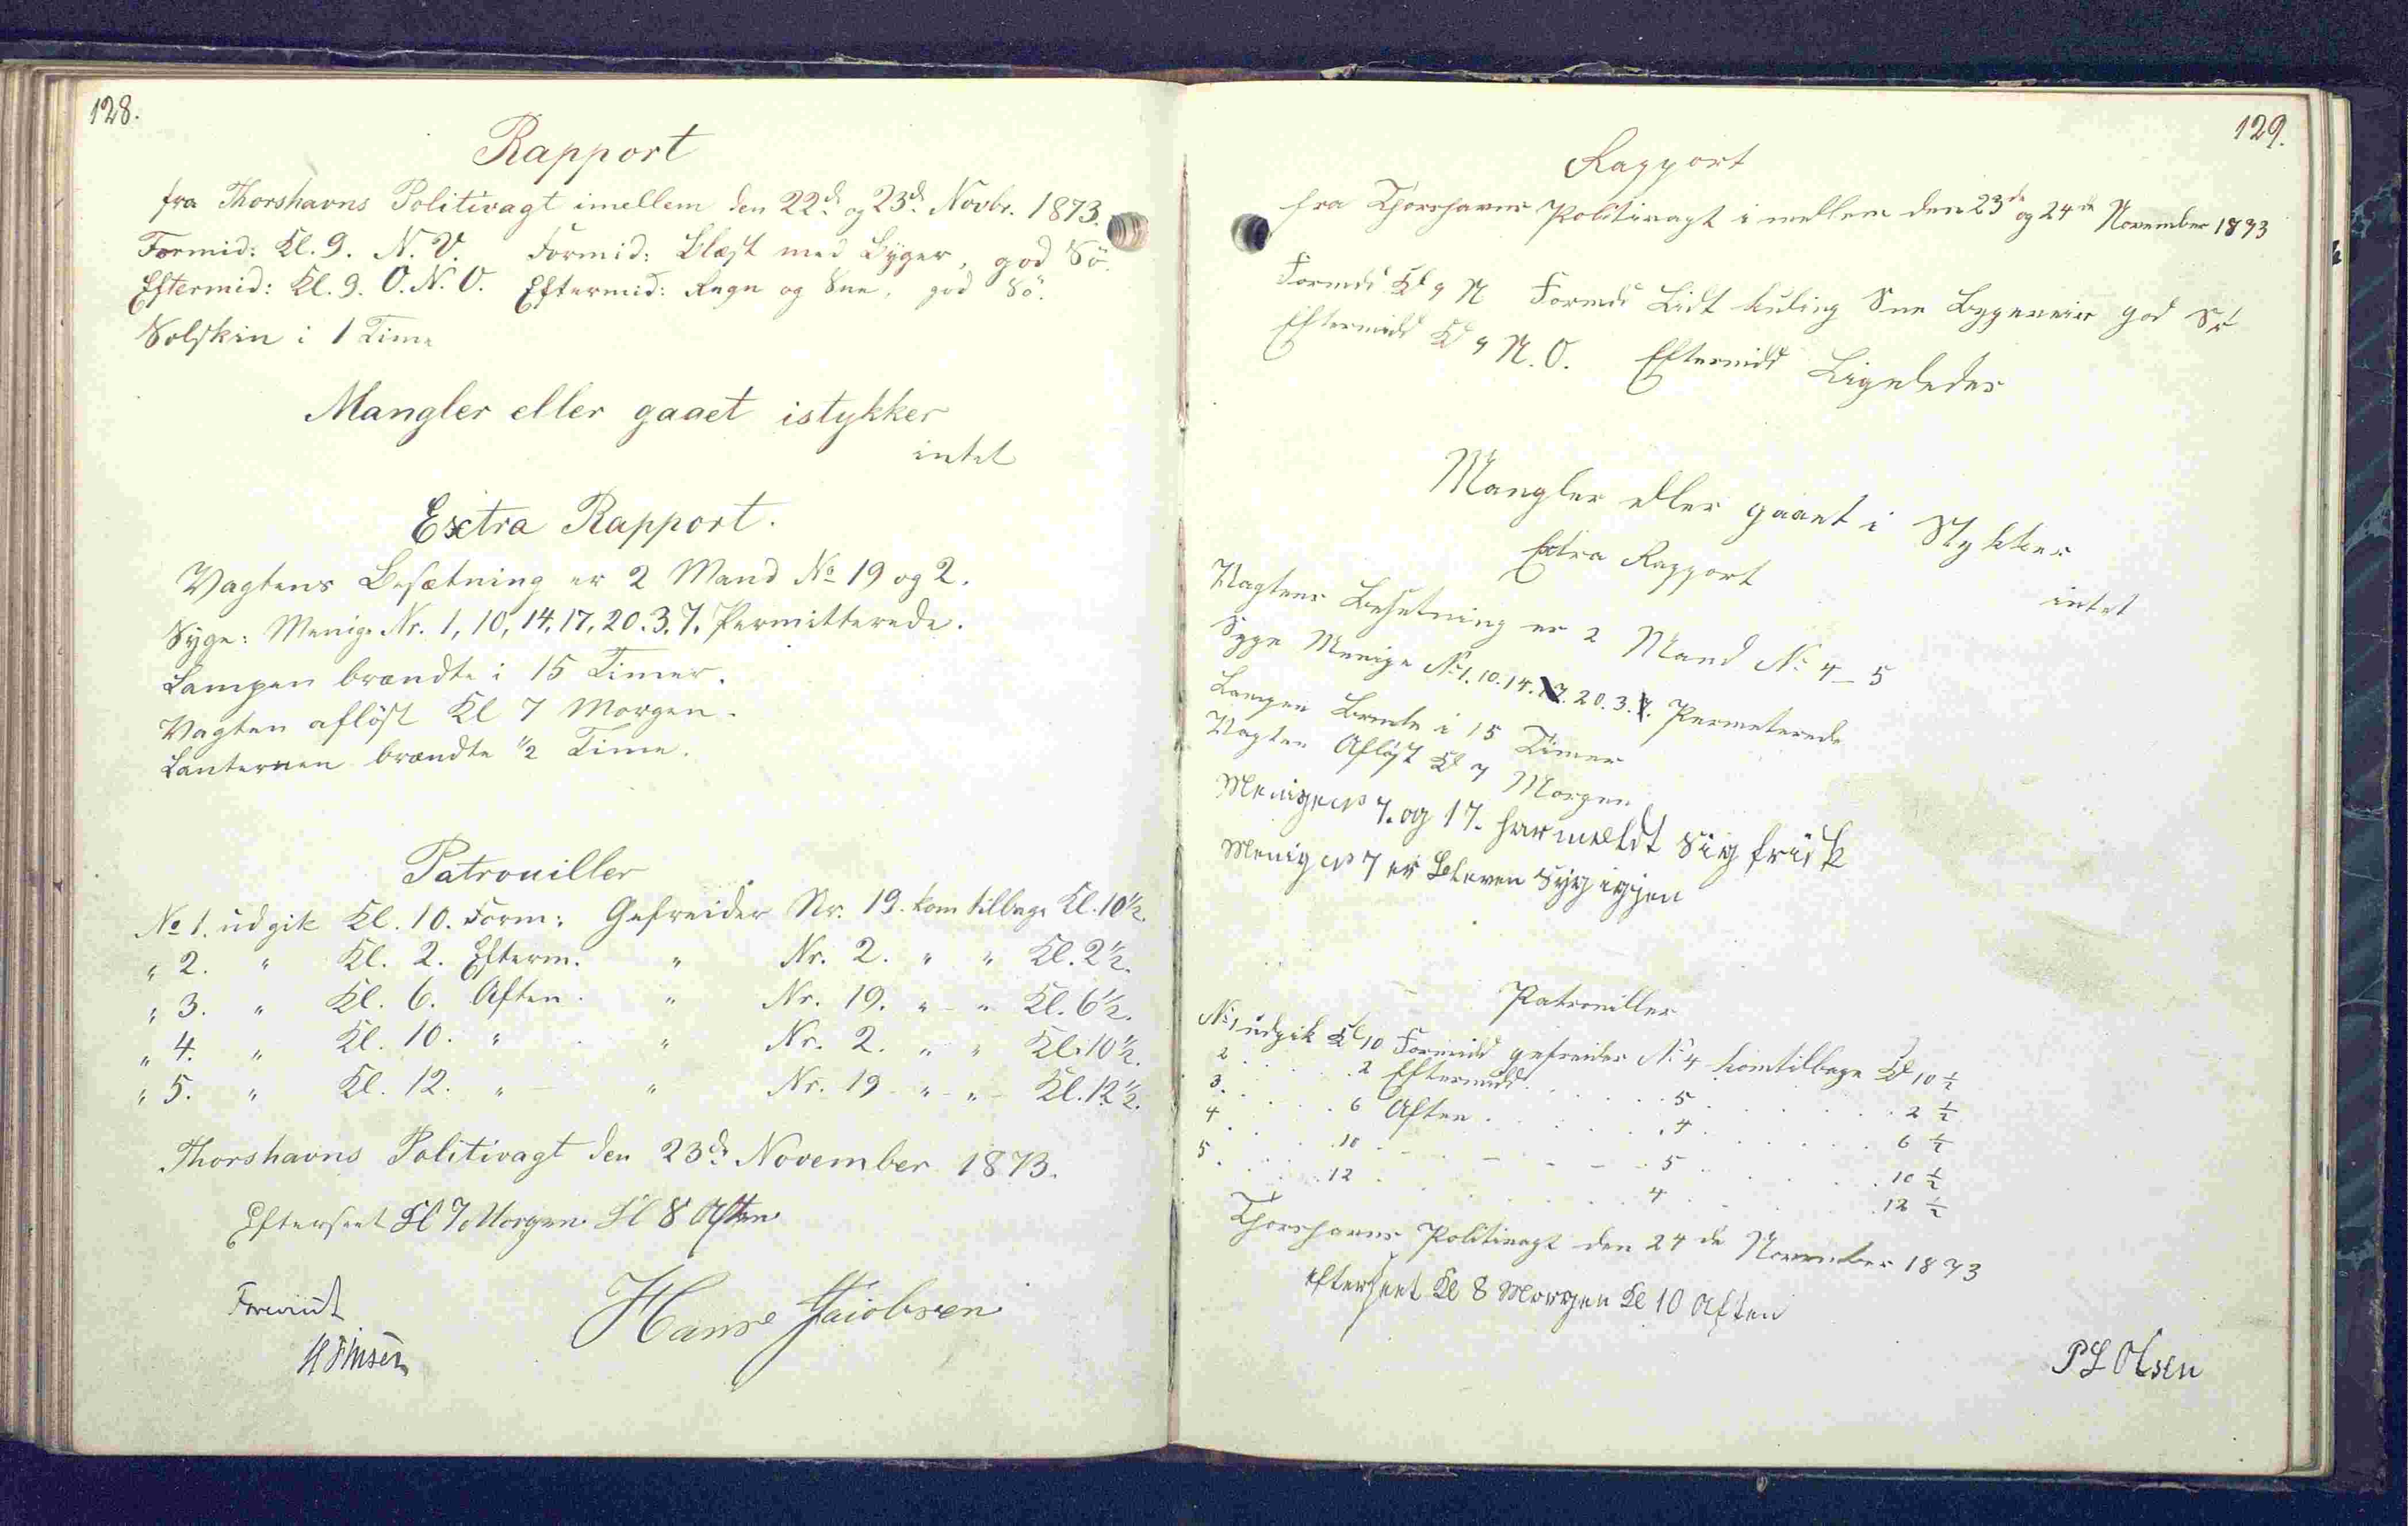 128.
Rapport
fra Thorshavns Politivagt imellem den 22de og 23de Novbr. 1873.
Formid: Kl. 9. N. V. Formid: Blæst med Byger, god Sö.
Eftermid: Kl. 9. O. N. O. Eftermid: Regn og Sne, god Sö.
Solskin i 1 Time
Mangler eller gaaet istykker
intet
Extra Rapport.
Vagtens Besætning er 2 Mand No 19 og 2.
Syge: Menige Nr. 1, 10, 14, 17, 20. 3. 7. Permitterede.
Lampen brændte i 15 Timer.
Vagten aflöst Kl 7 Morgen.
Lanternen brændte 1/2 Time.
Patrouiller
No 1. udgik Kl. 10. Form: Gefreider Nr. 19. kom tilbage Kl. 10 1/2.
" 2. " Kl. 2. Efterm. " Nr. 2. " " Kl. 2 1/2.
" 3. " Kl. 6. Aften. " Nr. 19. " - " Kl. 6 1/2.
" 4. " Kl. 10. " " Nr. 2. " " Kl. 10 1/2.
" 5. " Kl. 12. " " Nr. 19 - " - " - Kl. 12 1/2.
Thorshavns Politivagt den 23de November 1873.
Efterseet Kl 7 Morgen Kl 8 Aften
Forevist
Hans Jaiobsen
129.
Rapport
fra Thorshavns Politivagt i mellem den 23de og 24de November 1873
Formd Kl 9 N Formd Lidt kuling Sne Bygeveir god Sö
Eftermidd Kl 9 N. O. Eftermidd Ligeledes
Mangler eller gaaet i Stykker
intet
Extra Rapport
Vagtens Besetning er 2 Mand No 4 - 5
Syge Menige No 1. 10. 14. 17. 20. 3. 7. Permeterede
Lampen Brente i 15 Timer
Vagten Aflöst Kl 7 Morgen
Menige No 7. og 17. har meldt sig frisk
Menig No 7 er Bleven syg igjen
Patrouiller
No 1 udgik Kl 10 Formidd gefreider No 4 komtilbage Kl 10 1/2
2 . . . . 2 Eftermidd . . . 5 . . . . 2 1/2
3 . . . . 6 Aften . . . . 4 . . . . 6 1/2
4 . . . . 10 - - - - 5 . . . . 10 1/2
5 . . . . 12 . . . . 4 . . . . 12 1/2
Thorshavns Politivagt den 24de November 1873
efterseet Kl 8 Morgen Kl 10 Aften
P L Olsen